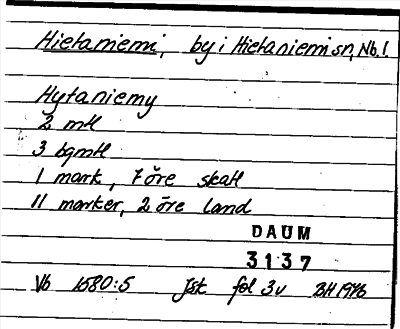 Hietaniemi, by i Hietaniemi sn, Nb. l.
Hytaniemy
2 mtl
3 bgmtl
1 mark, 7 öre skatt
11 marker, 2 öre land
DAUM
3137
Vb 1680:5 Jsk fol 3v BH 1976